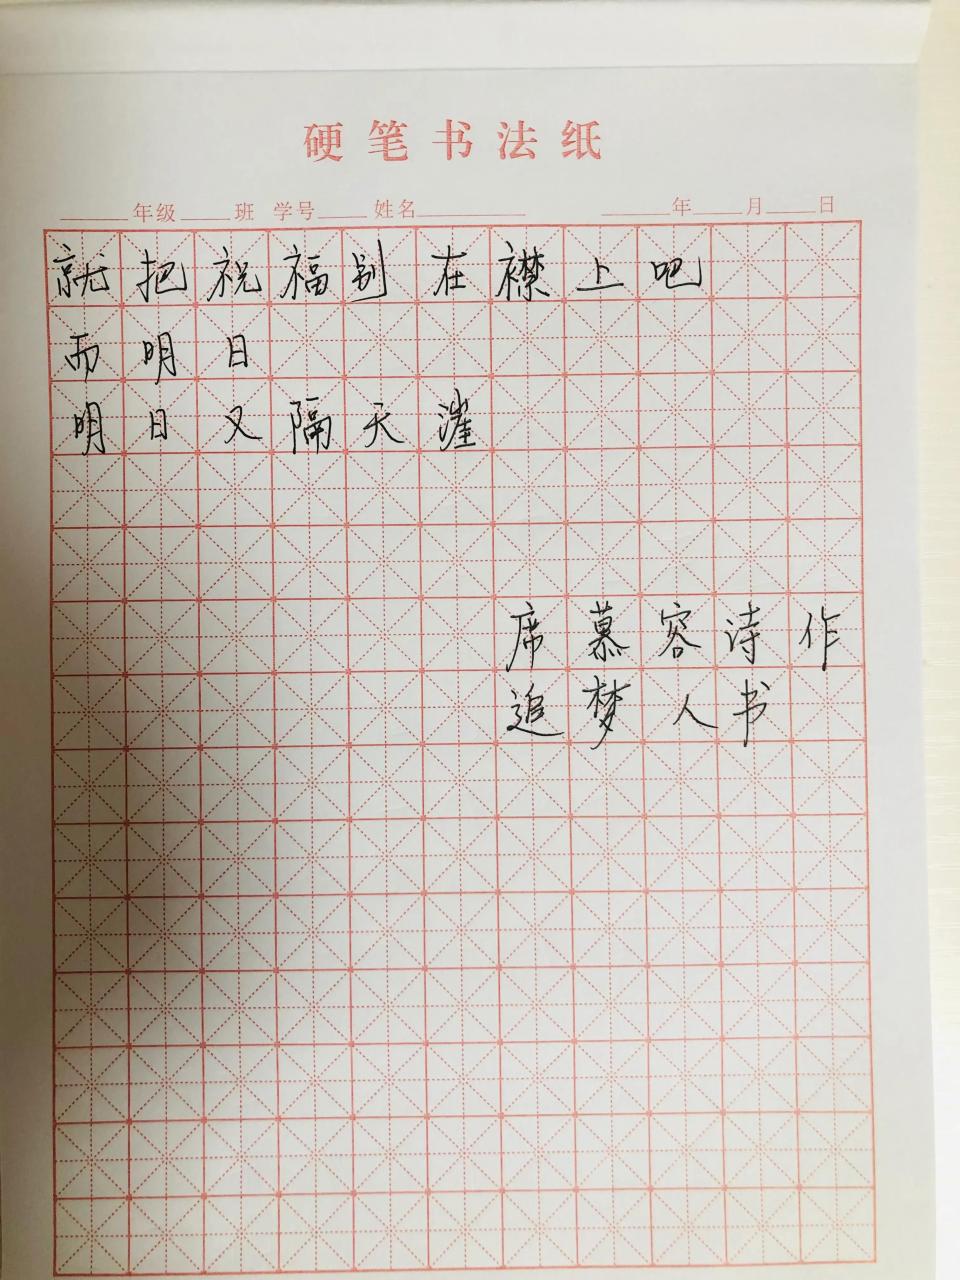 硬笔书法纸
年级 班 学号 姓名 年 月 日
就把祝福别在襟上吧
而明日
明日又隔天漄
席慕容诗作
追梦人书